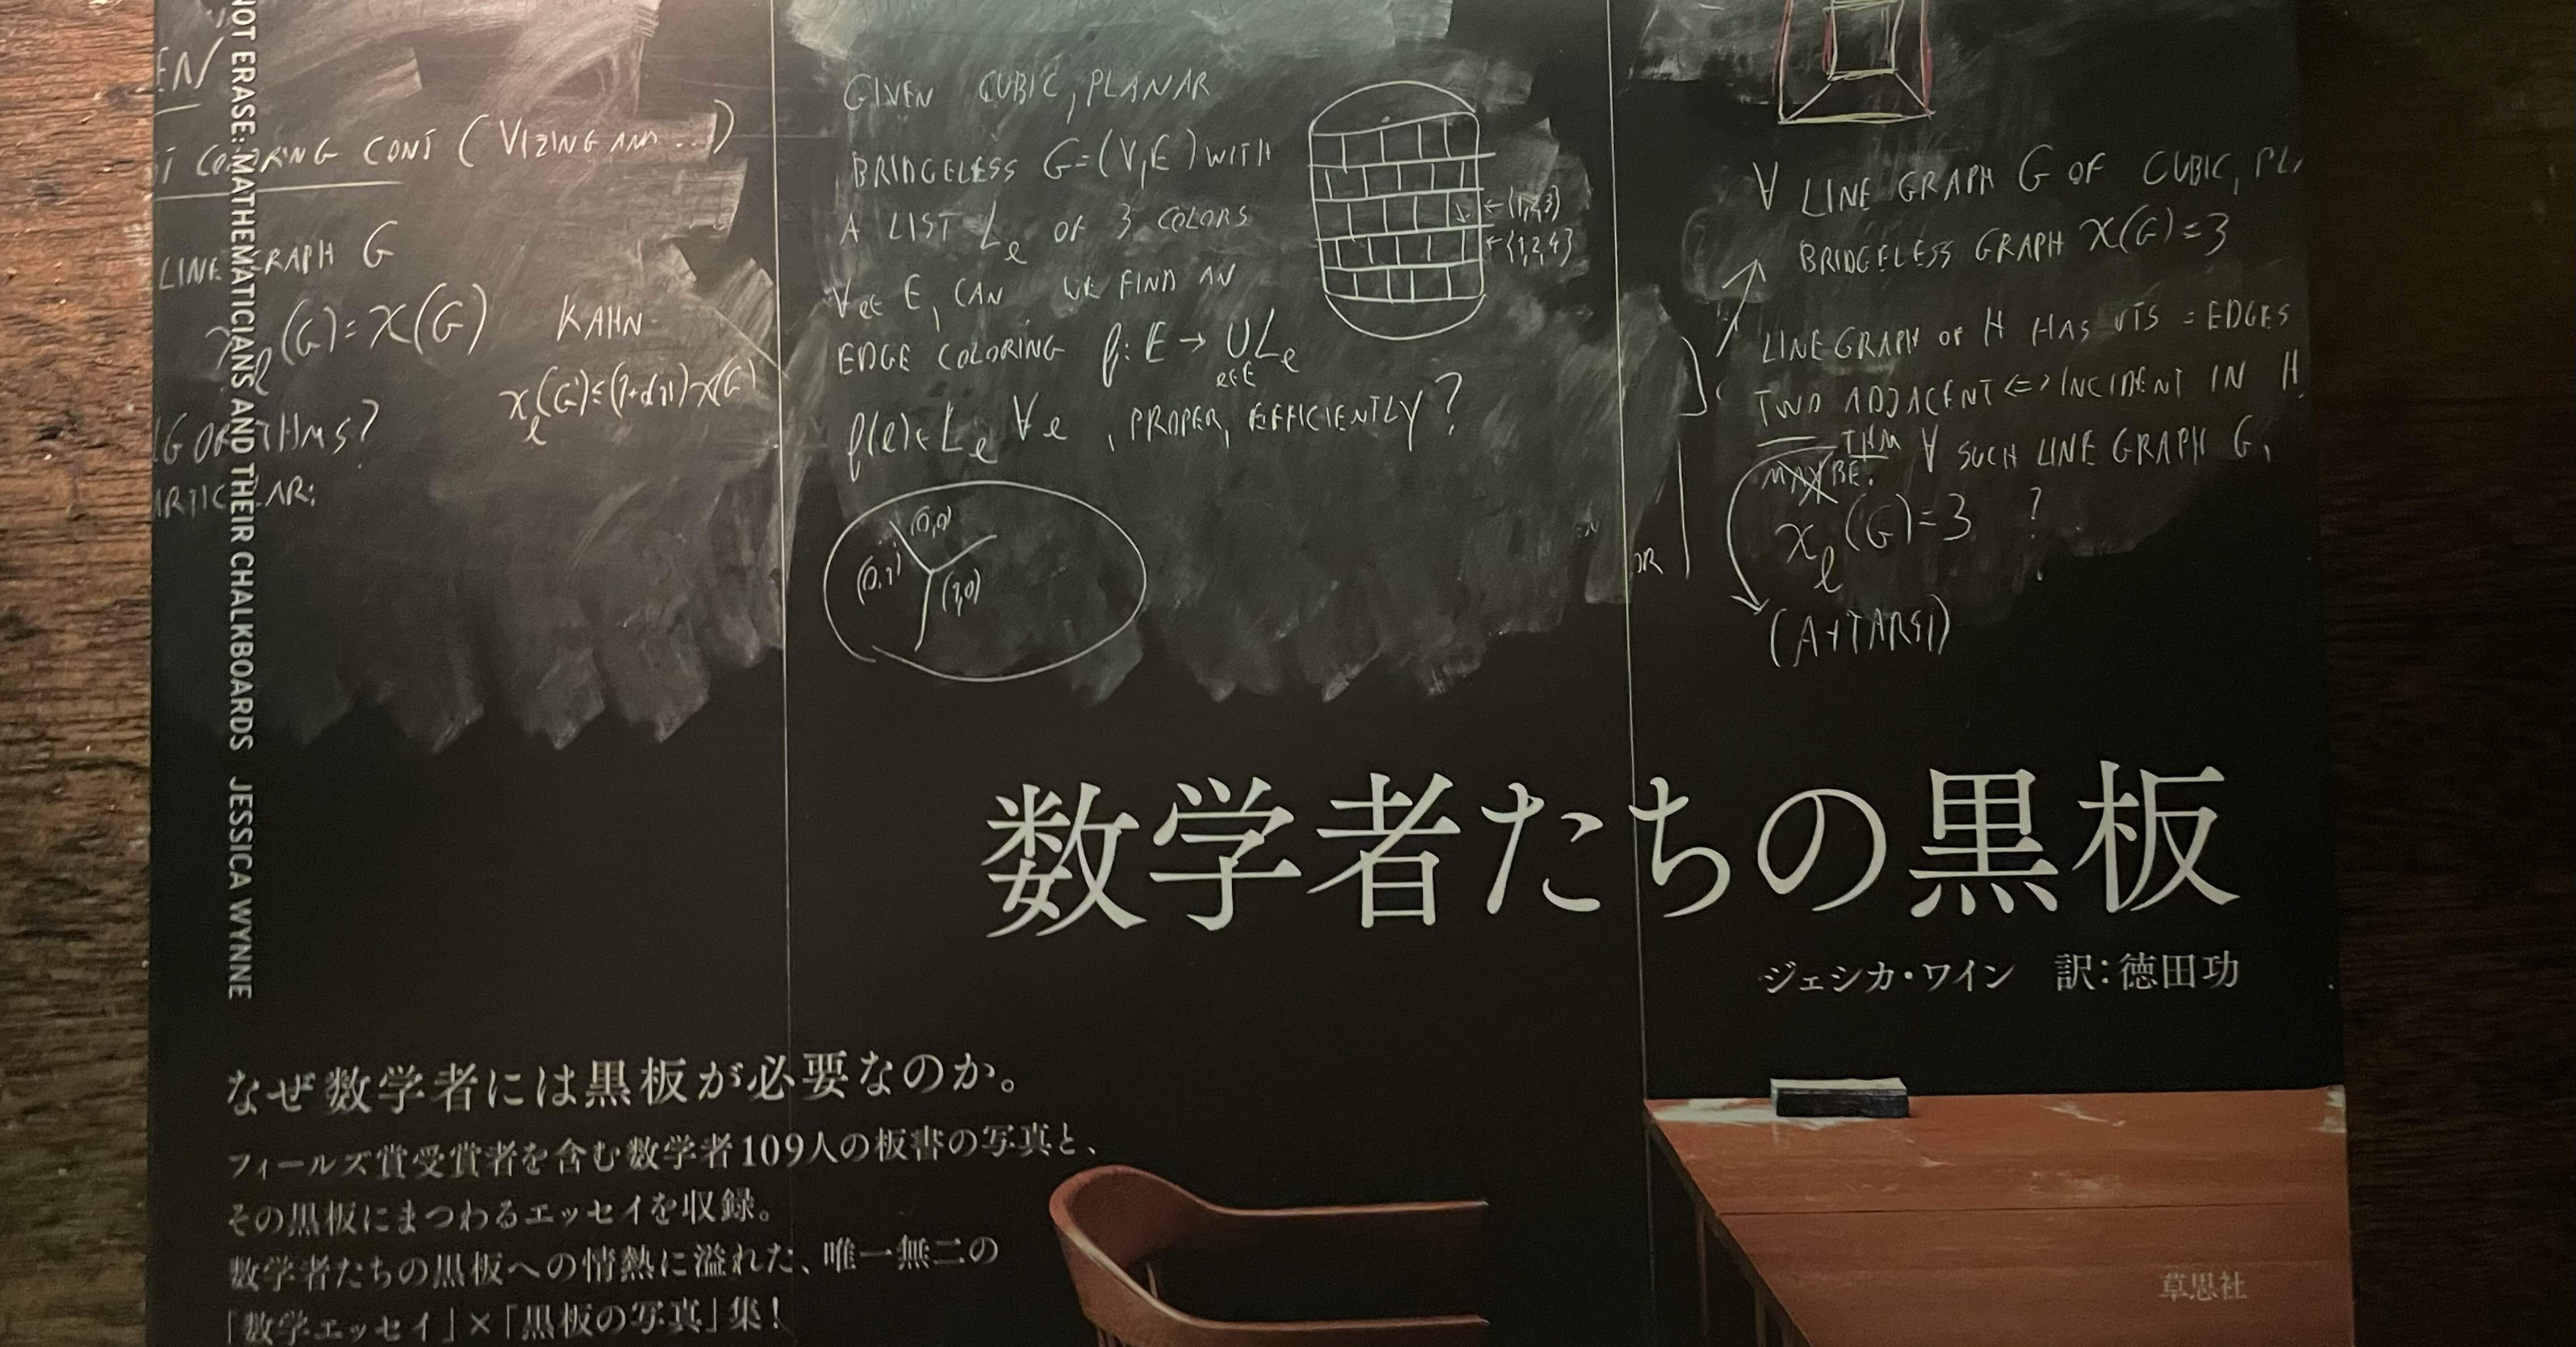 NOT ERASE: MATHEMATICIANS AND THEIR CHALKBOARDS JESSICA WYNNE
EN
COLORING CONJ (VIZING AND ...)
LINE GRAPH G
χℓ(G)=χ(G)
KAHN
ARTICULAR:
GIVEN CUBIC, PLANAR
BRIDGELESS G=(V,E) WITH
A LIST Lₑ OF 3 COLORS
∀e∈E, CAN WE FIND AN
EDGE COLORING f: E → ∪Lₑ
e∈E
f(e)∈Lₑ ∀e, PROPER, EFFICIENTLY?
←{1,2,3}
←{1,2,4}
(0,0)
(0,1)
(1,0)
∀ LINE GRAPH G OF CUBIC, PL
BRIDGELESS GRAPH χ(G)=3
LINE GRAPH OF H HAS VTS = EDGES
TWO ADJACENT ⇔ INCIDENT IN H
THM ∀ SUCH LINE GRAPH G,
MAYBE:
χℓ(G)=3 ?
OR
(A+TARSI)
数学者たちの黒板
ジェシカ・ワイン 訳:徳田功
なぜ数学者には黒板が必要なのか。
フィールズ賞受賞者を含む数学者109人の板書の写真と、
その黒板にまつわるエッセイを収録。
数学者たちの黒板への情熱に溢れた、唯一無二の
「数学エッセイ」×「黒板の写真」集!
草思社